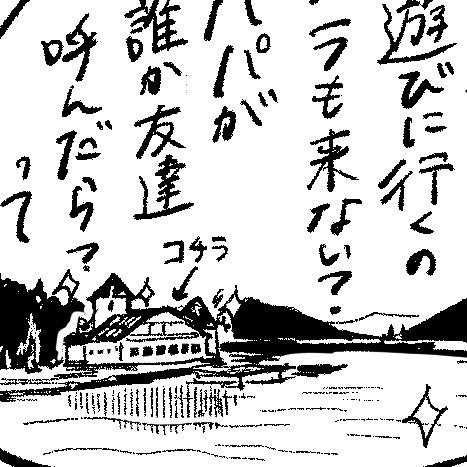 遊びに行くの
ラも来ない？
パパが
誰か友達
呼んだら？
って
コチラ